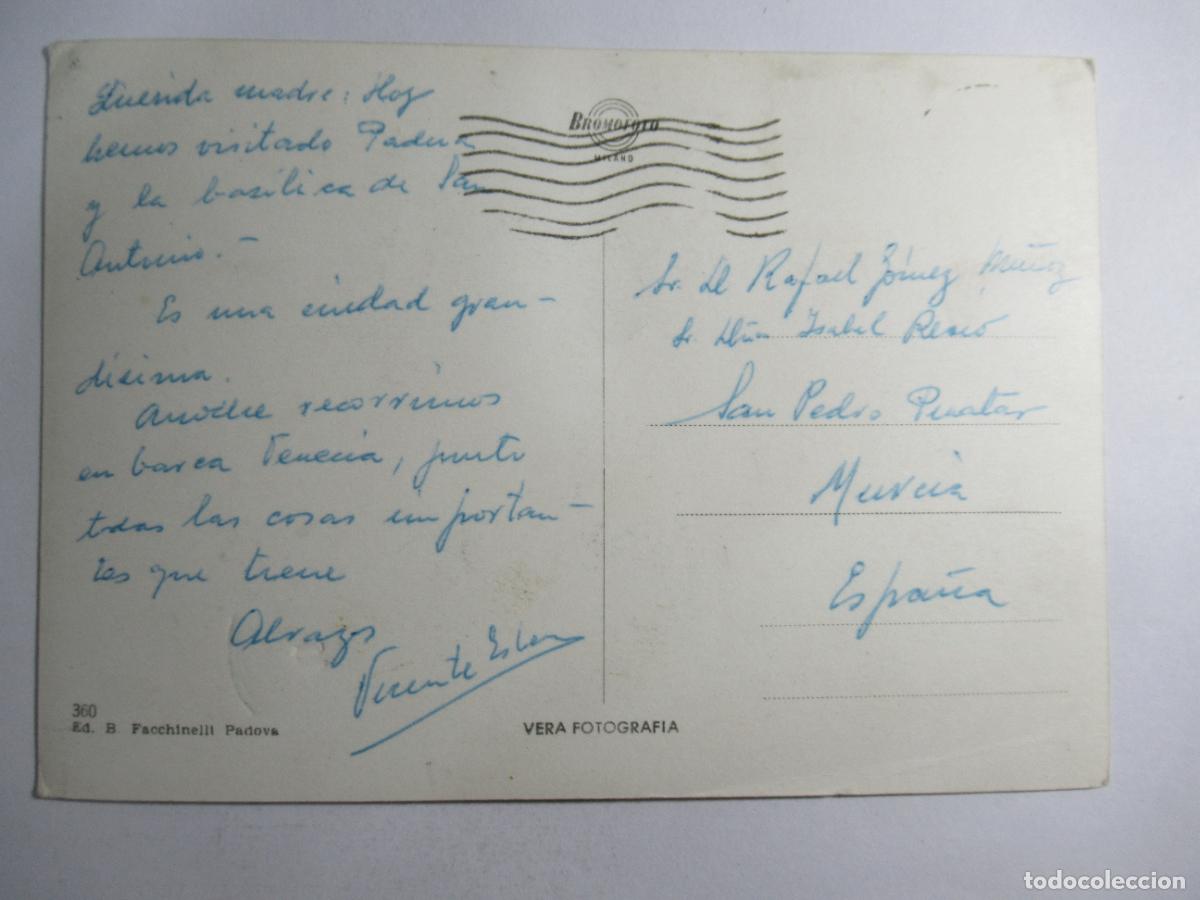 Querida madre: Hoy
hemos visitado Padua
y la basílica de San
Antonio.-
Es una ciudad gran-
dísima.
Anoche recorrimos
en barca Venecia, junto
todas las cosas importan-
tes que tiene
Abrazos
Vicente
360
Ed. B. Facchinelli Padova
VERA FOTOGRAFIA
BROMOFOTO
MILANO
Sr. D. Rafael Gómez Muñoz
Sr. Dña Isabel
San Pedro Pinatar
Murcia
España
todocoleccion